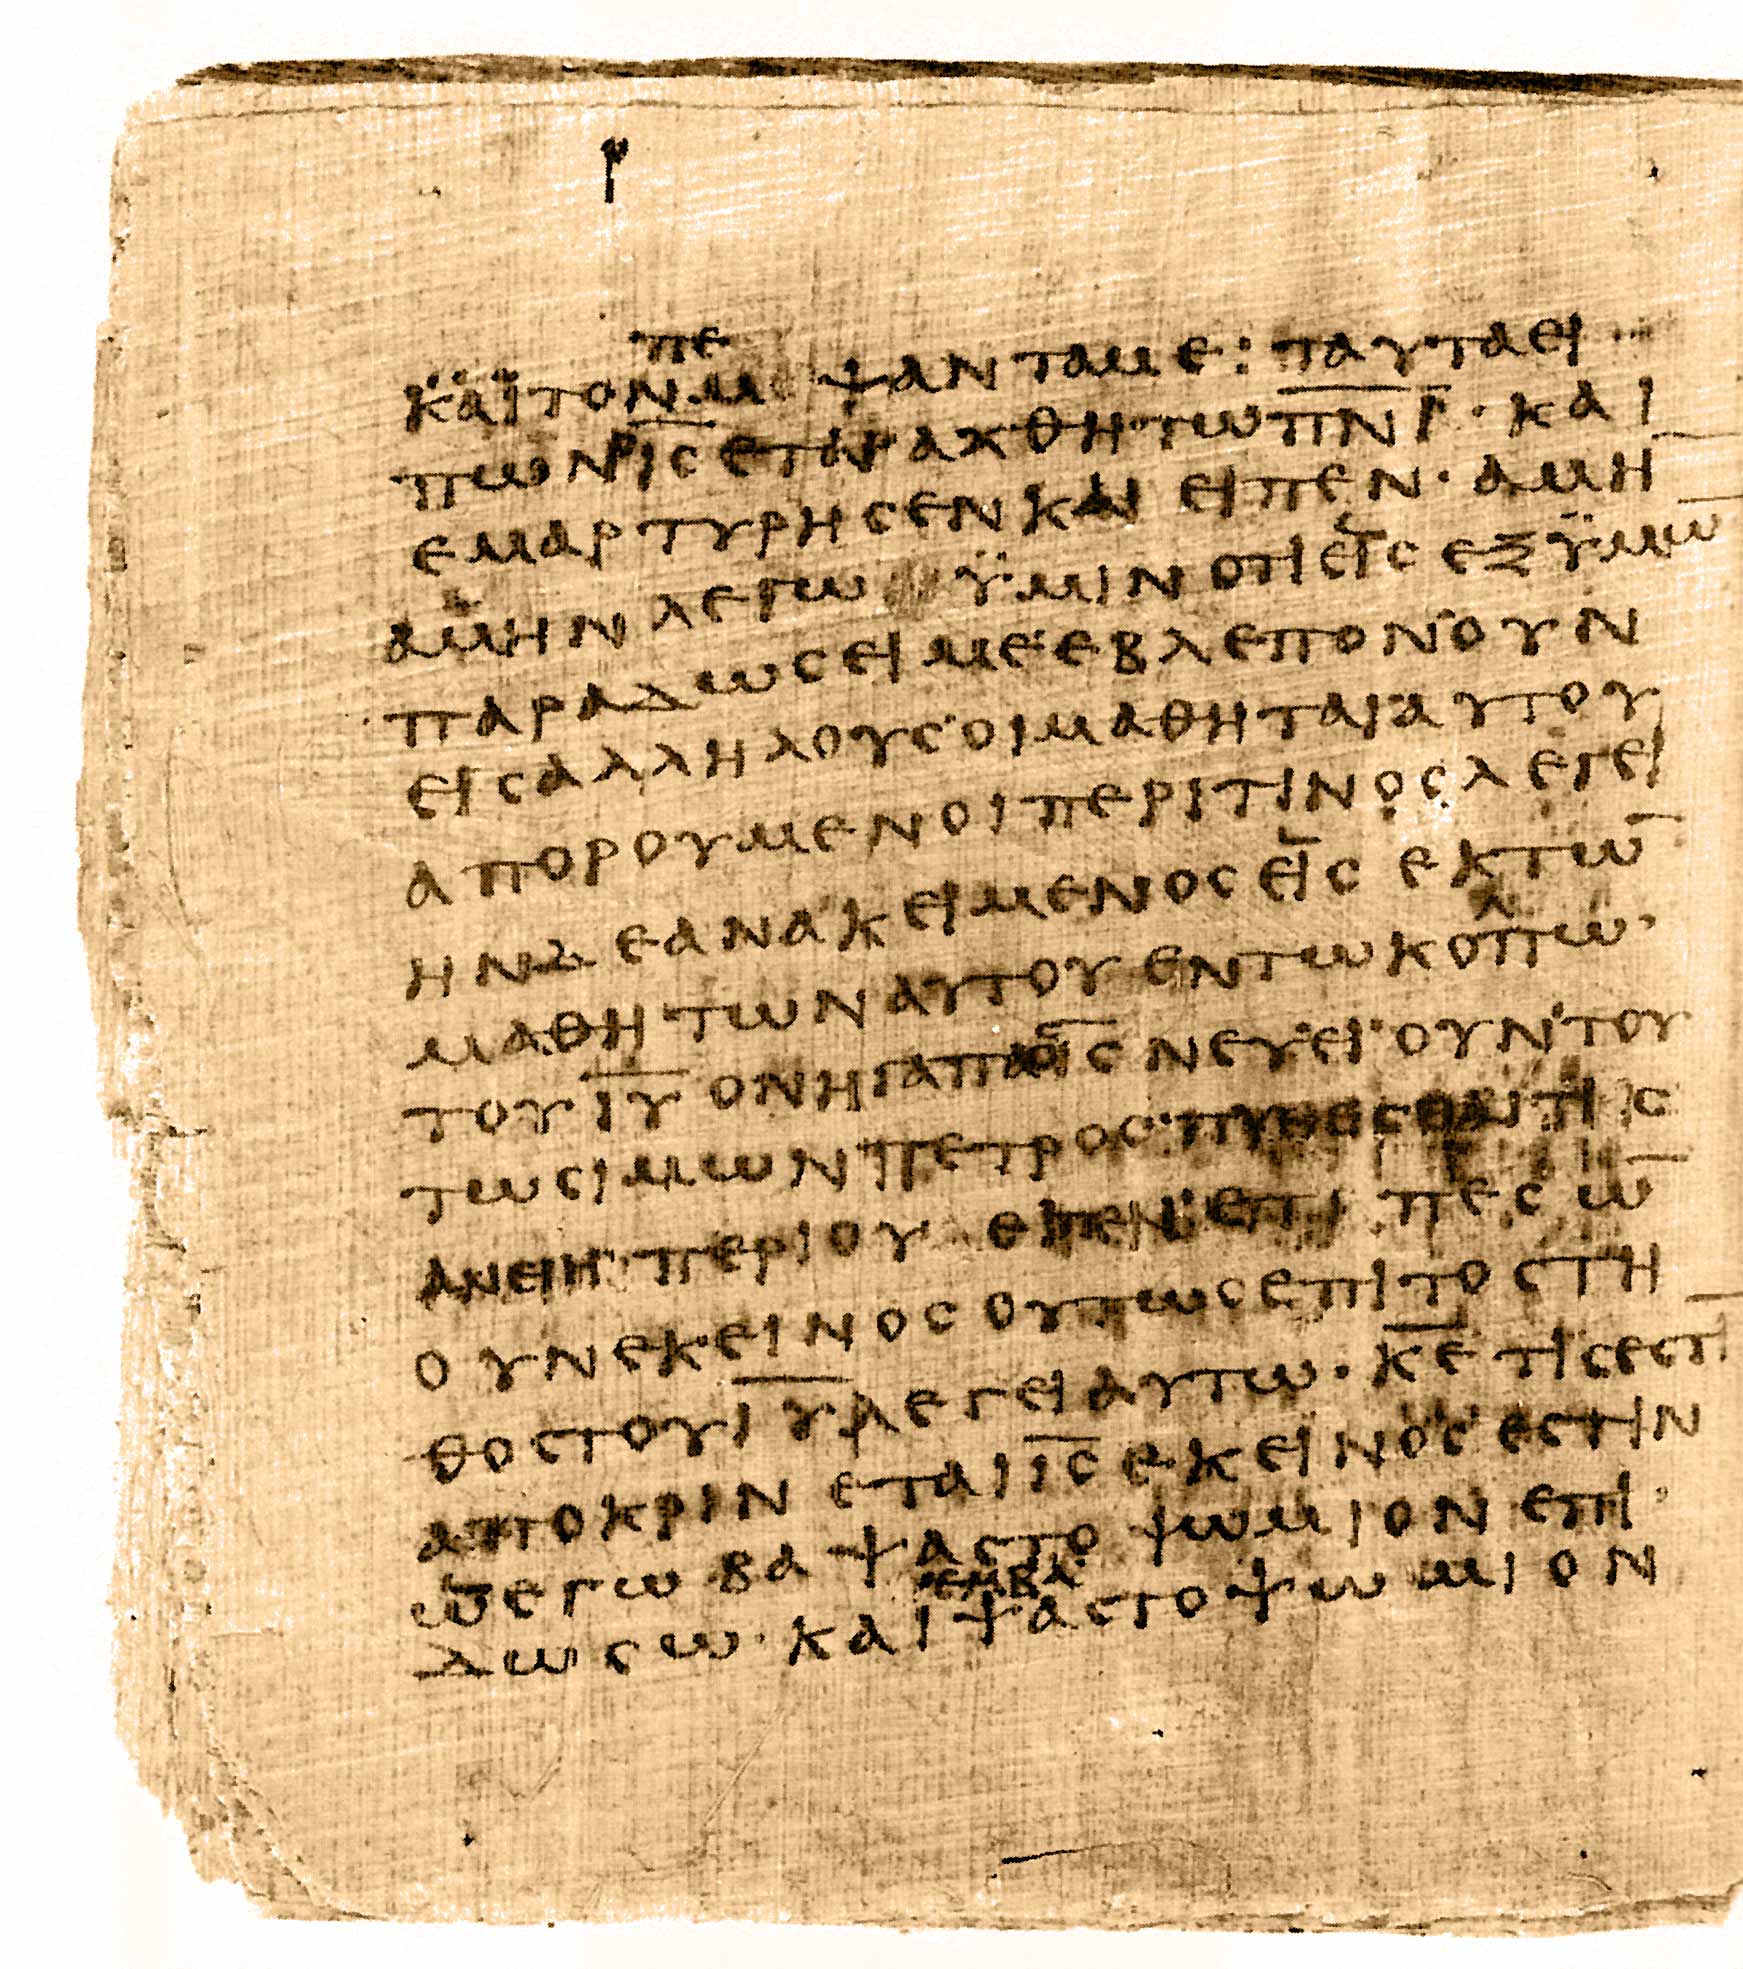 ρ
και τον πεμψαντα με: ταυτα ει
πων ι̅ϲ̅ εταραχθη τω π̅ν̅ι̅ · και
εμαρτυρηϲεν και ειπεν · αμη̅
αμην λεγω ϋμιν οτι ειϲ εξ ϋμω̅
παραδωϲει με εβλεπον ουν
ειϲ αλληλουϲ οι μαθηται αυτου
απορουμενοι περι τινοϲ λεγει
ην δε ανακειμενοϲ ειϲ εκ τω̅
μαθητων αυτου εν τω κολπω
του ι̅υ̅ ον ηγαπα ο ι̅ϲ̅ νευει ουν του
τω ϲιμων πετροϲ πυθεϲθαι τιϲ
αν ειη περι ου ειπεν επιπεϲω̅
ουν εκεινοϲ ουτωϲ επι το ϲτη
θοϲ του ι̅υ̅ λεγει αυτω · κ̅ε̅ τιϲ εϲτι̅
αποκρινεται ι̅ϲ̅ εκεινοϲ εϲτιν
ω εγω βαψαϲ το ψωμιον επι
δωϲω · και εμβαψαϲ το ψωμιον